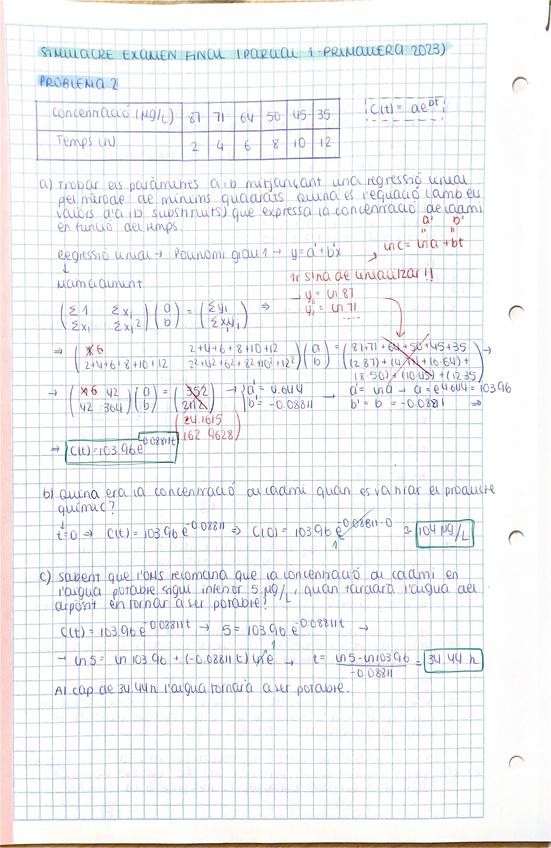 SIMULACRE EXAMEN FINAL (PARCIAL 1 - PRIMAVERA 2023)
PROBLEMA 2
Concentració (µg/L) 87 71 64 50 45 35
Temps (h) 2 4 6 8 10 12
C(t) = ae^bt
a) Trobar els paràmetres a i b mitjançant una regressió lineal
pel mètode de mínims quadrats. Quina és l'equació (amb els
valors d'a i b substituïts) que expressa la concentració de cadmi
en funció del temps.
a' b'
" "
Regressió lineal → Polinomi grau 1 → y = a' + b'x
ln c = ln a + bt
↓
Matricialment
s'ha de linealitzar!!
→ y₀ = ln 87
y₁ = ln 71
(Σ1 Σx₁) (a) = (Σy₁) ⇒
(Σx₁ Σx₁²) (b) (Σx₁y₁)
⇒ (6 2+4+6+8+10+12) (a) = (87+71+64+50+45+35) →
(2+4+6+8+10+12 2²+4²+6²+8²+10²+12²) (b) ((2·87)+(4·71)+(6·64)+
(8·50)+(10·45)+(12·35))
→ (6 42) (a) = (352) → {a' = 4.644 → a' = ln a → a = e^4.644 = 103.96
(42 364) (b) (2112) {b' = -0.08811 b' = b = -0.0881 ⇒
(24.1615)
(162.9628)
⇒ C(t) = 103.96e^-0.08811t
b) Quina era la concentració de cadmi quan es va tirar el producte
químic?
t=0 ⇒ C(t) = 103.96 e^-0.08811 ⇒ C(0) = 103.96 e^-0.08811·0 ≈ 104 µg/L
1
c) Sabent que l'OMS recomana que la concentració de cadmi en
l'aigua potable sigui inferior 5 µg/L, quan tardarà l'aigua del
dipòsit en tornar a ser potable?
C(t) = 103.96 e^-0.08811t → 5 = 103.96 e^-0.08811t →
1
→ ln 5 = ln 103.96 + (-0.08811 t) ln e → t = ln 5 - ln 103.96 / -0.08811 = 34.44 h
Al cap de 34.44h l'aigua tornarà a ser potable.